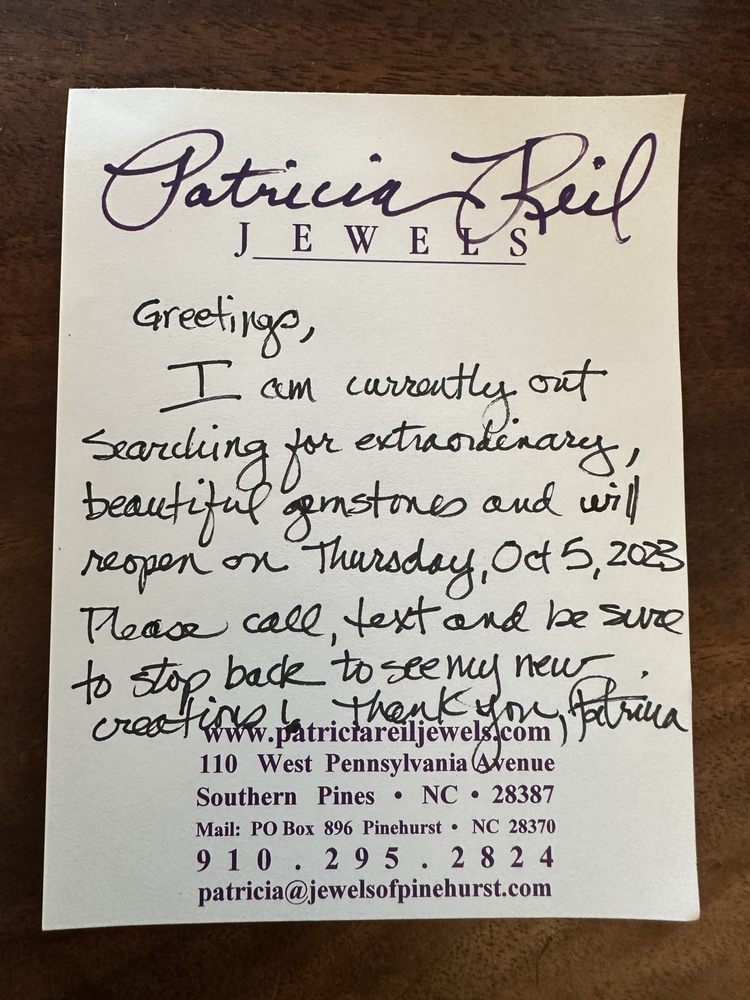 Patricia Reil
JEWELS
Greetings,
I am currently out
searching for extraordinary,
beautiful gemstones and will
reopen on Thursday, Oct 5, 2023
Please call, text and be sure
to stop back to see my new
creations! Thank you, Patricia
www.patriciareiljewels.com
110 West Pennsylvania Avenue
Southern Pines • NC • 28387
Mail: PO Box 896 Pinehurst • NC 28370
910.295.2824
patricia@jewelsofpinehurst.com